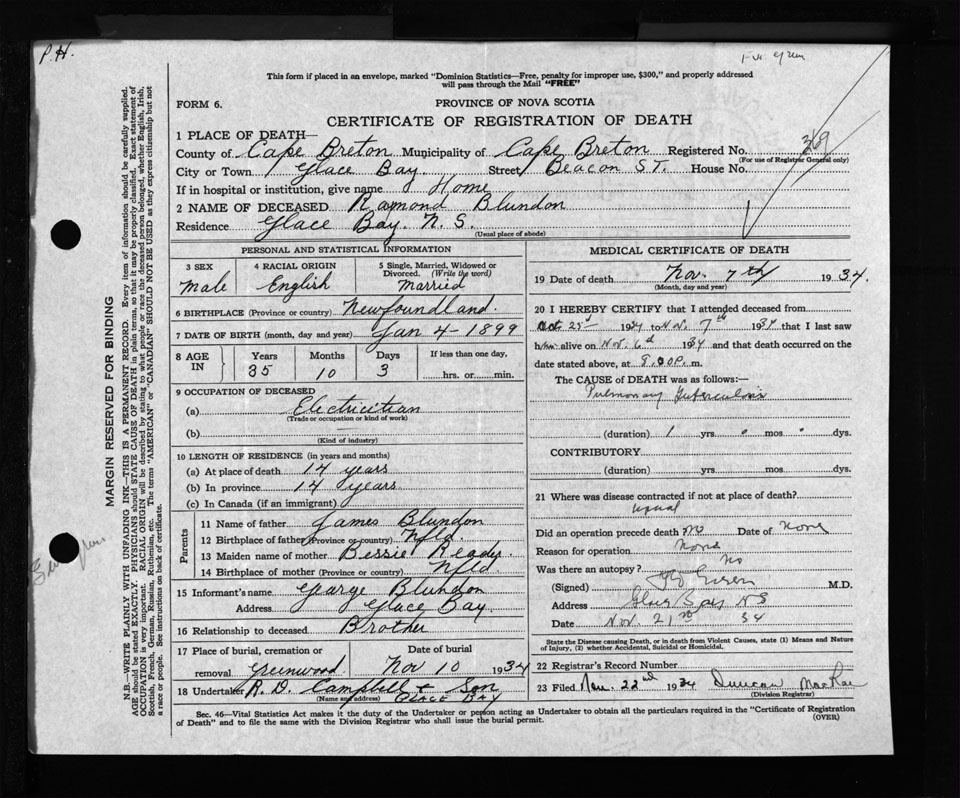 P.H.
This form if placed in an envelope, marked "Dominion Statistics—Free, penalty for improper use, $300," and properly addressed
will pass through the Mail "FREE"
FORM 6.
PROVINCE OF NOVA SCOTIA
CERTIFICATE OF REGISTRATION OF DEATH
1 PLACE OF DEATH—
County of Cape Breton Municipality of Cape Breton Registered No. 369
(For use of Registrar General only)
City or Town Glace Bay Street Beacon ST. House No.
If in hospital or institution, give name Home
2 NAME OF DECEASED Raymond Blundon
Residence Glace Bay. N. S.
(Usual place of abode)
MARGIN RESERVED FOR BINDING
N.B.—WRITE PLAINLY WITH UNFADING INK—THIS IS A PERMANENT RECORD. Every item of information should be carefully supplied.
AGE should be stated EXACTLY. PHYSICIANS should STATE CAUSE OF DEATH in plain terms, so that it may be properly classified. Exact statement of
OCCUPATION is very important. RACIAL ORIGIN will be described by stating to what people or race the deceased person belonged, whether English, Irish,
Scottish, French, German, Russian, Ruthenian, etc. The terms "AMERICAN" or "CANADIAN" SHOULD NOT BE USED as they express citizenship but not
a race or people. See instructions on back of certificate.
PERSONAL AND STATISTICAL INFORMATION
3 SEX
Male
4 RACIAL ORIGIN
English
5 Single, Married, Widowed or
Divorced. (Write the word)
Married
6 BIRTHPLACE (Province or country) Newfoundland.
7 DATE OF BIRTH (month, day and year) Jan 4-1899
8 AGE
IN
Years Months Days If less than one day,
35 10 3 hrs. or min.
9 OCCUPATION OF DECEASED
(a) Electricitian
(Trade or occupation or kind of work)
(b)
(Kind of industry)
10 LENGTH OF RESIDENCE (in years and months)
(a) At place of death 14 years
(b) In province 14 years
(c) In Canada (if an immigrant)
Parents
11 Name of father James Blundon
12 Birthplace of father (Province or country) Nfld.
13 Maiden name of mother Bessie Reader.
14 Birthplace of mother (Province or country) Nfld
15 Informant's name Garge Blundon
Address Glace Bay.
16 Relationship to deceased Brother
17 Place of burial, cremation or
removal Greenwood
Date of burial
Nov 10 1934
18 Undertaker R. D. Campbell & Son
(Name and address) GLACE BAY
MEDICAL CERTIFICATE OF DEATH
19 Date of death Nov. 7th 1934.
(Month, day and year)
20 I HEREBY CERTIFY that I attended deceased from
Oct 25t 1934 to Nov. 7th 1934 that I last saw
h/im alive on Nov. 6th 1934 and that death occurred on the
date stated above, at 8.00P. m.
The CAUSE OF DEATH was as follows:—
Pulmonary Tuberculosis
(duration) 1 yrs. mos. dys.
CONTRIBUTORY
(duration) yrs. mos. dys.
21 Where was disease contracted if not at place of death?
usual
Did an operation precede death? no Date of None
Reason for operation None
Was there an autopsy? No
(Signed) M.D.
Address Glace Bay NS
Date Nov. 21st 34
State the Disease causing Death, or in death from Violent Causes, state (1) Means and Nature
of Injury, (2) whether Accidental, Suicidal or Homicidal.
22 Registrar's Record Number
23 Filed Nov. 22nd 1934 Duncan MacRae
(Division Registrar)
Sec. 46—Vital Statistics Act makes it the duty of the Undertaker or person acting as Undertaker to obtain all the particulars required in the "Certificate of Registration
of Death" and to file the same with the Division Registrar who shall issue the burial permit.
(OVER)